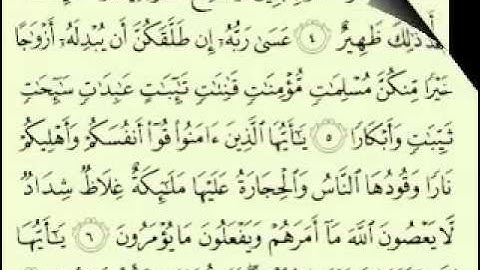 ذَٰلِكَ ظَهِيرٌ ٤ عَسَىٰ رَبُّهُۥٓ إِن طَلَّقَكُنَّ أَن يُبْدِلَهُۥٓ أَزْوَٰجًا
خَيْرًا مِّنكُنَّ مُسْلِمَٰتٍ مُّؤْمِنَٰتٍ قَٰنِتَٰتٍ تَٰٓئِبَٰتٍ عَٰبِدَٰتٍ سَٰٓئِحَٰتٍ
ثَيِّبَٰتٍ وَأَبْكَارًا ٥ يَٰٓأَيُّهَا ٱلَّذِينَ ءَامَنُوا۟ قُوٓا۟ أَنفُسَكُمْ وَأَهْلِيكُمْ
نَارًا وَقُودُهَا ٱلنَّاسُ وَٱلْحِجَارَةُ عَلَيْهَا مَلَٰٓئِكَةٌ غِلَاظٌ شِدَادٌ
لَّا يَعْصُونَ ٱللَّهَ مَآ أَمَرَهُمْ وَيَفْعَلُونَ مَا يُؤْمَرُونَ ٦ يَٰٓأَيُّهَا